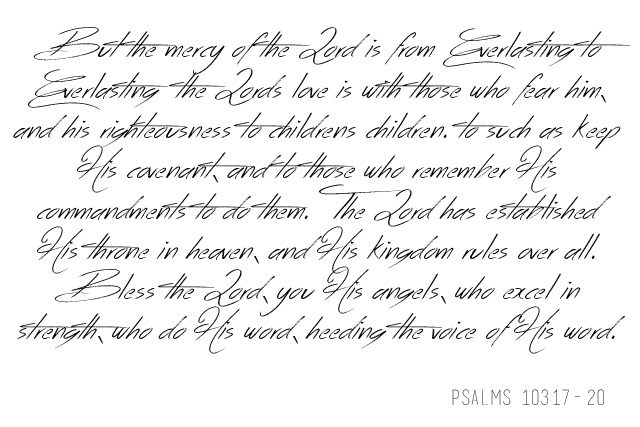 But the mercy of the Lord is from Everlasting to
Everlasting the Lords love is with those who fear him,
and his righteousness to childrens children. to such as keep
His covenant, and to those who remember His
commandments to do them. The Lord has established
His throne in heaven, and His kingdom rules over all.
Bless the Lord, you His angels, who excel in
strength, who do His word, heeding the voice of His word.
PSALMS 103:17 - 20